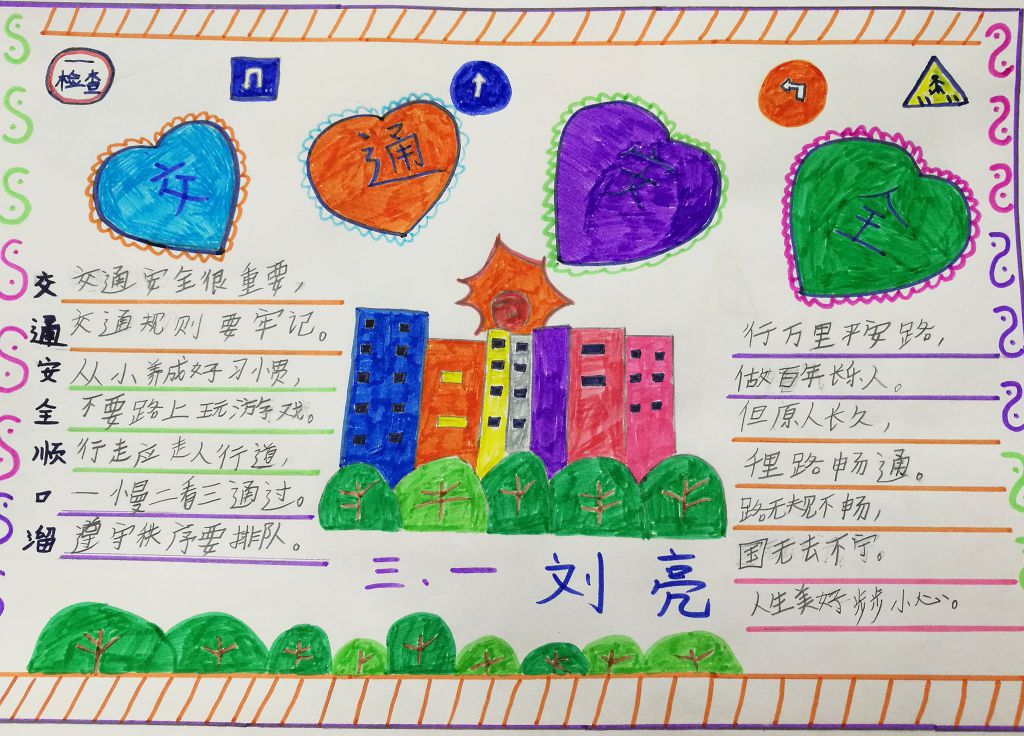 一
检查
交
通
安
全
交通安全顺口溜
交通安全很重要，
交通规则要牢记。
从小养成好习惯，
不要路上玩游戏。
行走应走人行道，
一慢二看三通过。
遵守秩序要排队。
行万里平安路，
做百年长乐人。
但原人长久，
千里路畅通。
路无规不畅，
国无去不宁。
人生美好步步小心。
三、一 刘亮